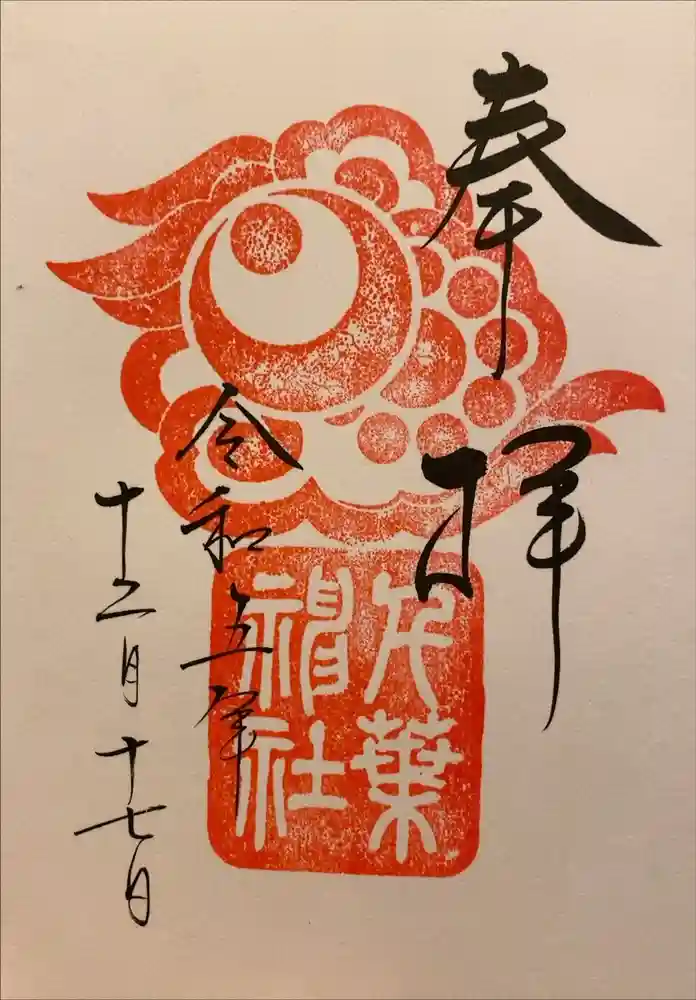 奉拝
千葉
神社
令和五年
十二月十七日